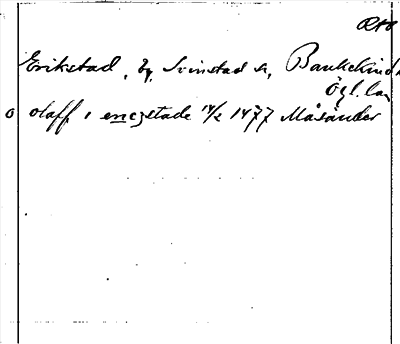 Ö10
Erikstad, by, Svinstad sn, Bankekind
Ögl. län
o olaff i enczstade 14/2 1477 Måsånder